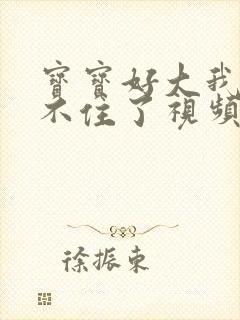 寶寶好大我
不住了視頻
徐振東